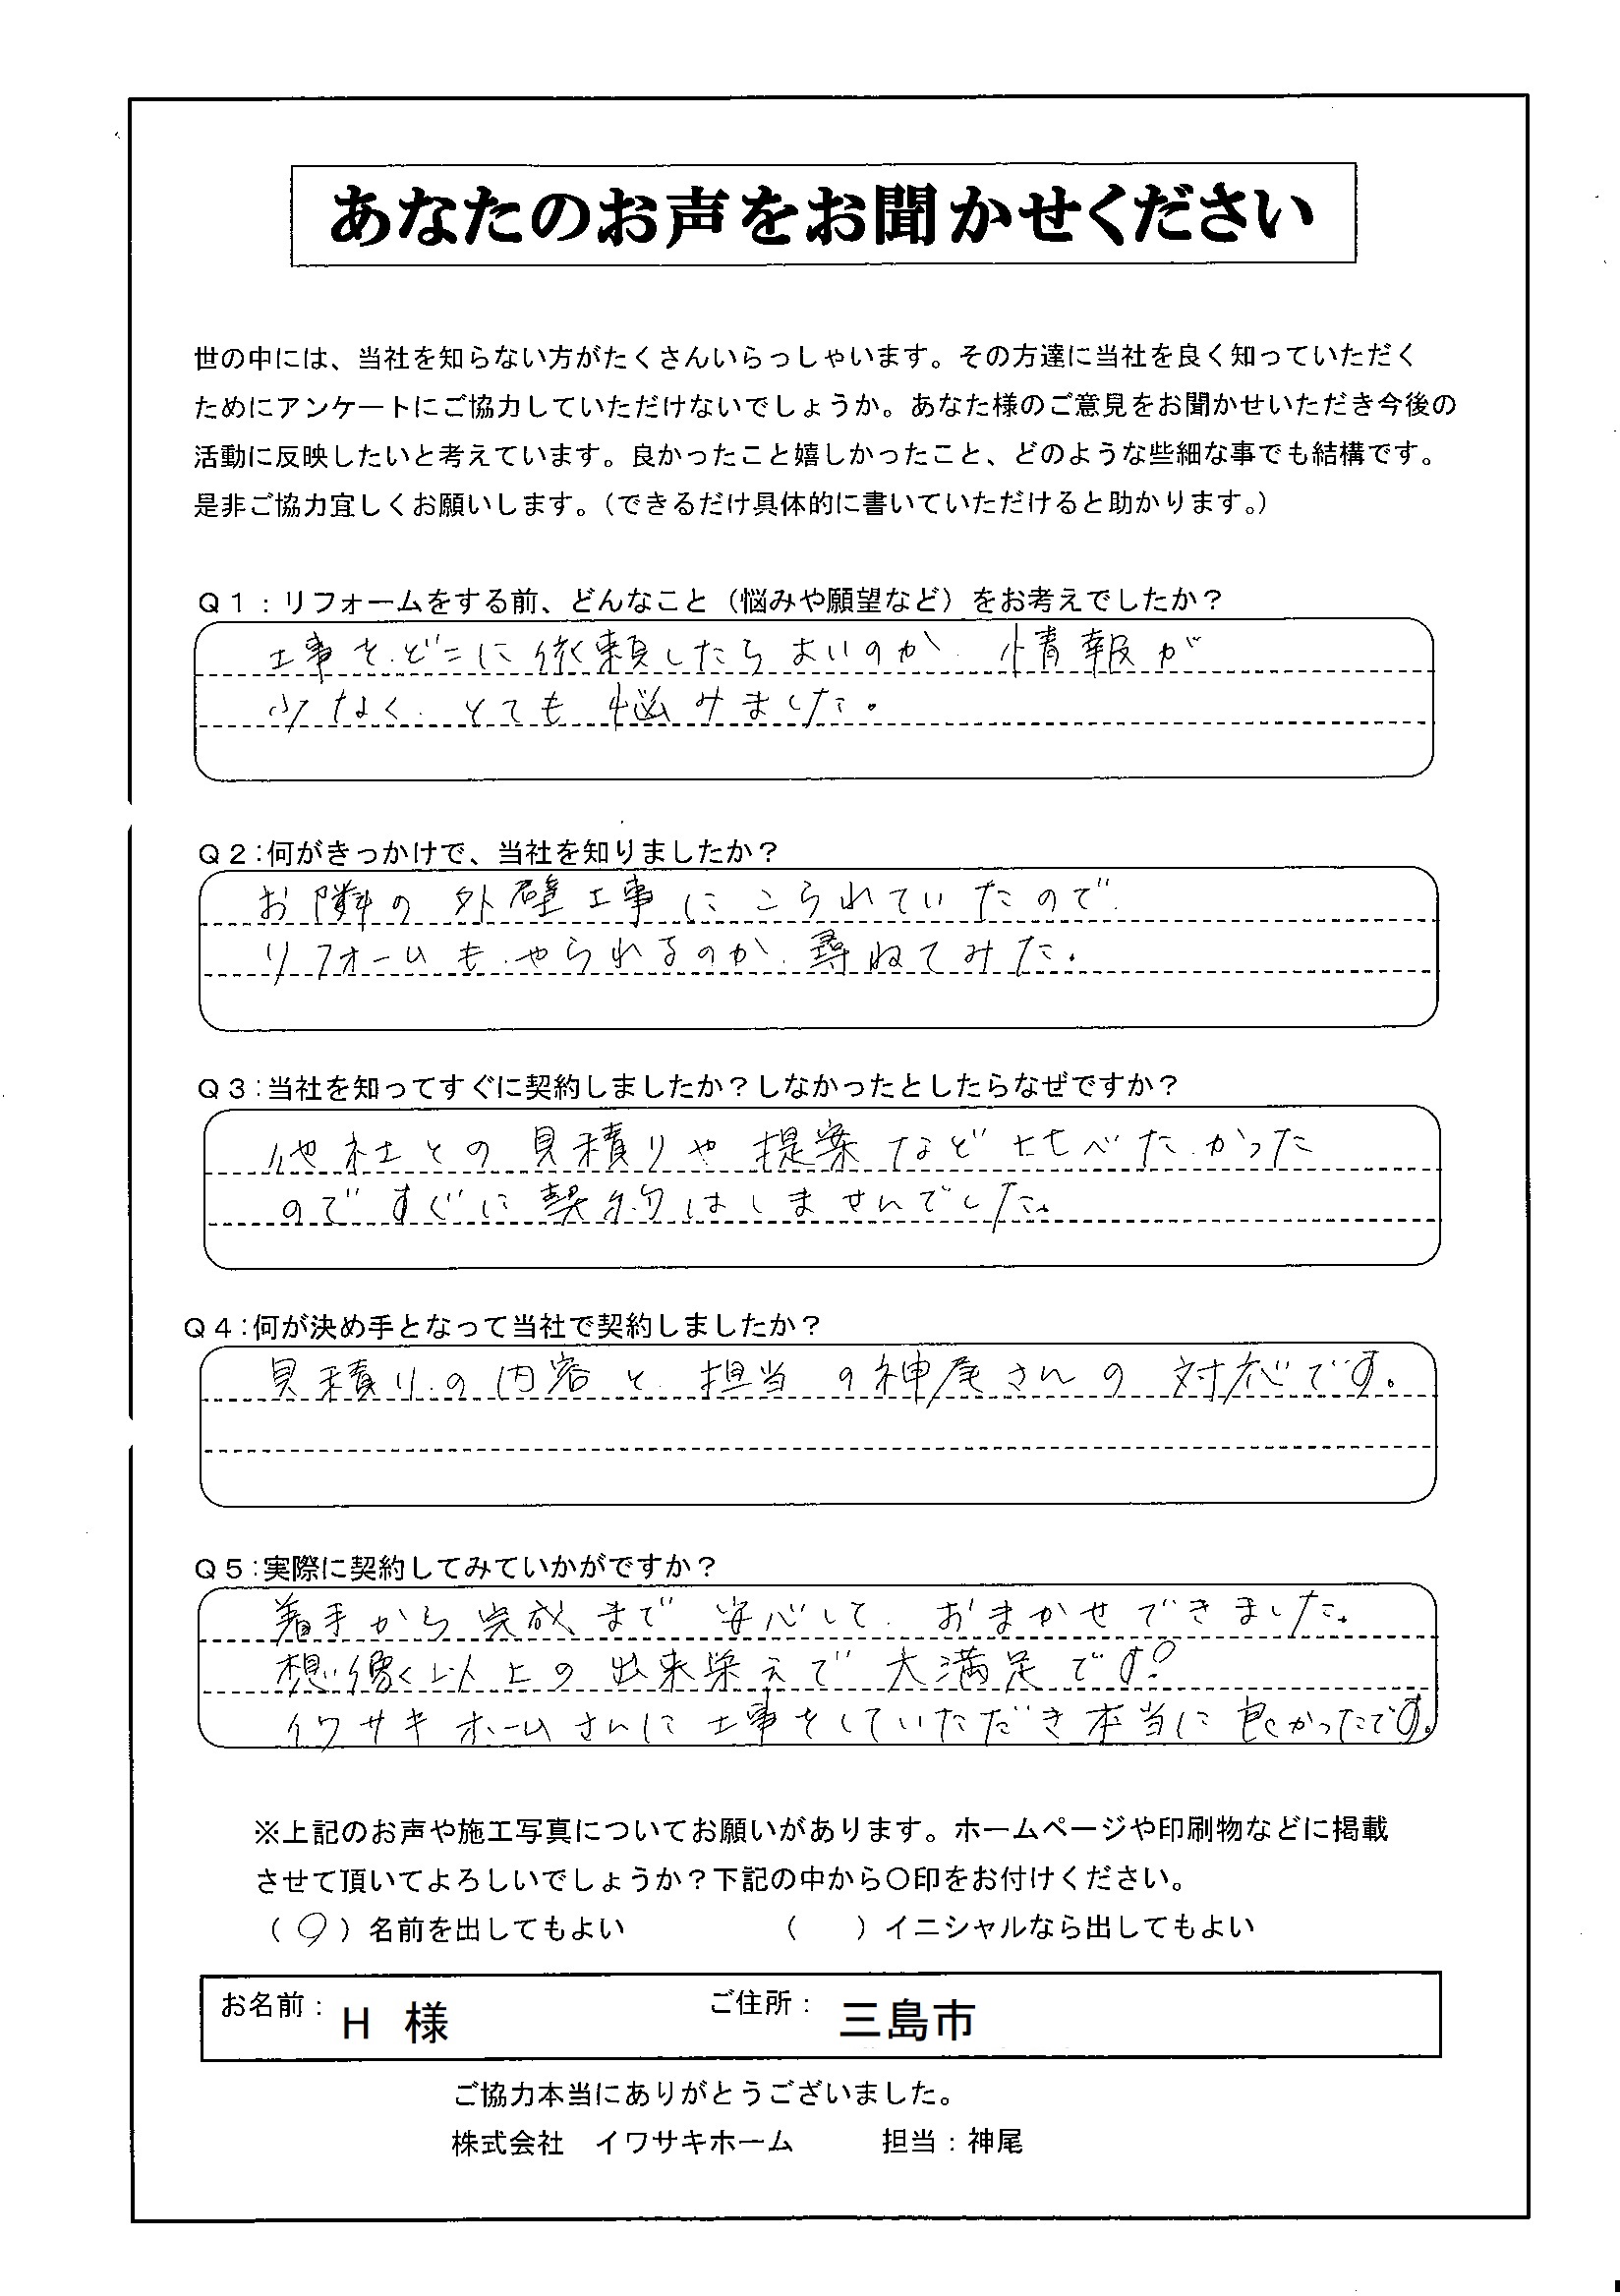 あなたのお声をお聞かせください
世の中には、当社を知らない方がたくさんいらっしゃいます。その方達に当社を良く知っていただく
ためにアンケートにご協力していただけないでしょうか。あなた様のご意見をお聞かせいただき今後の
活動に反映したいと考えています。良かったこと嬉しかったこと、どのような些細な事でも結構です。
是非ご協力宜しくお願いします。(できるだけ具体的に書いていただけると助かります。)
Q1:リフォームをする前、どんなこと(悩みや願望など)をお考えでしたか?
工事を、どこに依頼したらよいのか、情報が
少なく、とても悩みました。
Q2:何がきっかけで、当社を知りましたか?
お隣の外壁工事にこられていたので、
リフォームも、やられるのか、尋ねてみた。
Q3:当社を知ってすぐに契約しましたか?しなかったとしたらなぜですか?
他社との見積りや提案など比べたかった
のですぐに契約はしませんでした。
Q4:何が決め手となって当社で契約しましたか?
見積りの内容と、担当の神尾さんの対応です。
Q5:実際に契約してみていかがですか?
着手から完成まで安心して、おまかせできました。
想像以上の出来栄えで大満足です!
イワサキホームさんに工事をしていただき本当に良かったです。
※上記のお声や施工写真についてお願いがあります。ホームページや印刷物などに掲載
させて頂いてよろしいでしょうか?下記の中から〇印をお付けください。
(〇)名前を出してもよい ( )イニシャルなら出してもよい
お名前: H 様 ご住所: 三島市
ご協力本当にありがとうございました。
株式会社 イワサキホーム 担当:神尾